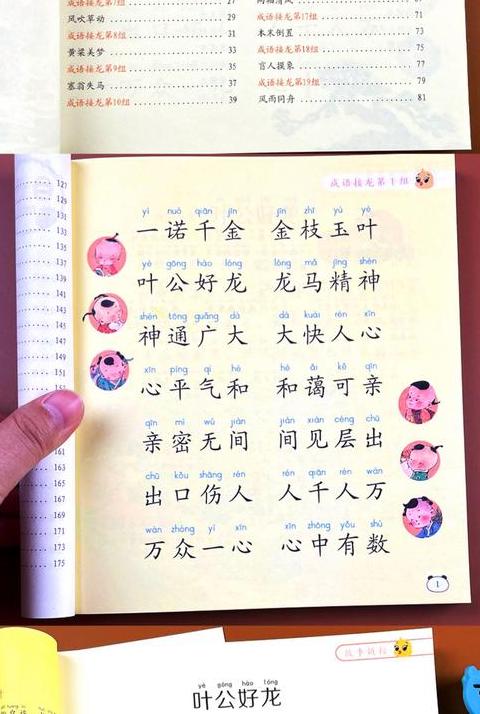 成语接龙第7组 27
风吹草动 29
成语接龙第8组 31
黄粱美梦 33
成语接龙第9组 35
塞翁失马 37
成语接龙第10组 39
成语接龙第17组 71
本末倒置 73
成语接龙第18组 75
盲人摸象 77
成语接龙第19组 79
风雨同舟 81
127
129
131
133
135
137
139
141
143
145
147
149
151
161
163
165
167
169
171
173
175
成语接龙第1组
yì nuò qiān jīn jīn zhī yù yè
一诺千金 金枝玉叶
yè gōng hào lóng lóng mǎ jīng shén
叶公好龙 龙马精神
shén tōng guǎng dà dà kuài rén xīn
神通广大 大快人心
xīn píng qì hé hé ǎi kě qīn
心平气和 和蔼可亲
qīn mì wú jiàn jiàn xiàn céng chū
亲密无间 间见层出
chū kǒu shāng rén rén qiān rén wàn
出口伤人 人千人万
wàn zhòng yì xīn xīn zhōng yǒu shù
万众一心 心中有数
1
故事链接
yè gōng hào lóng
叶公好龙